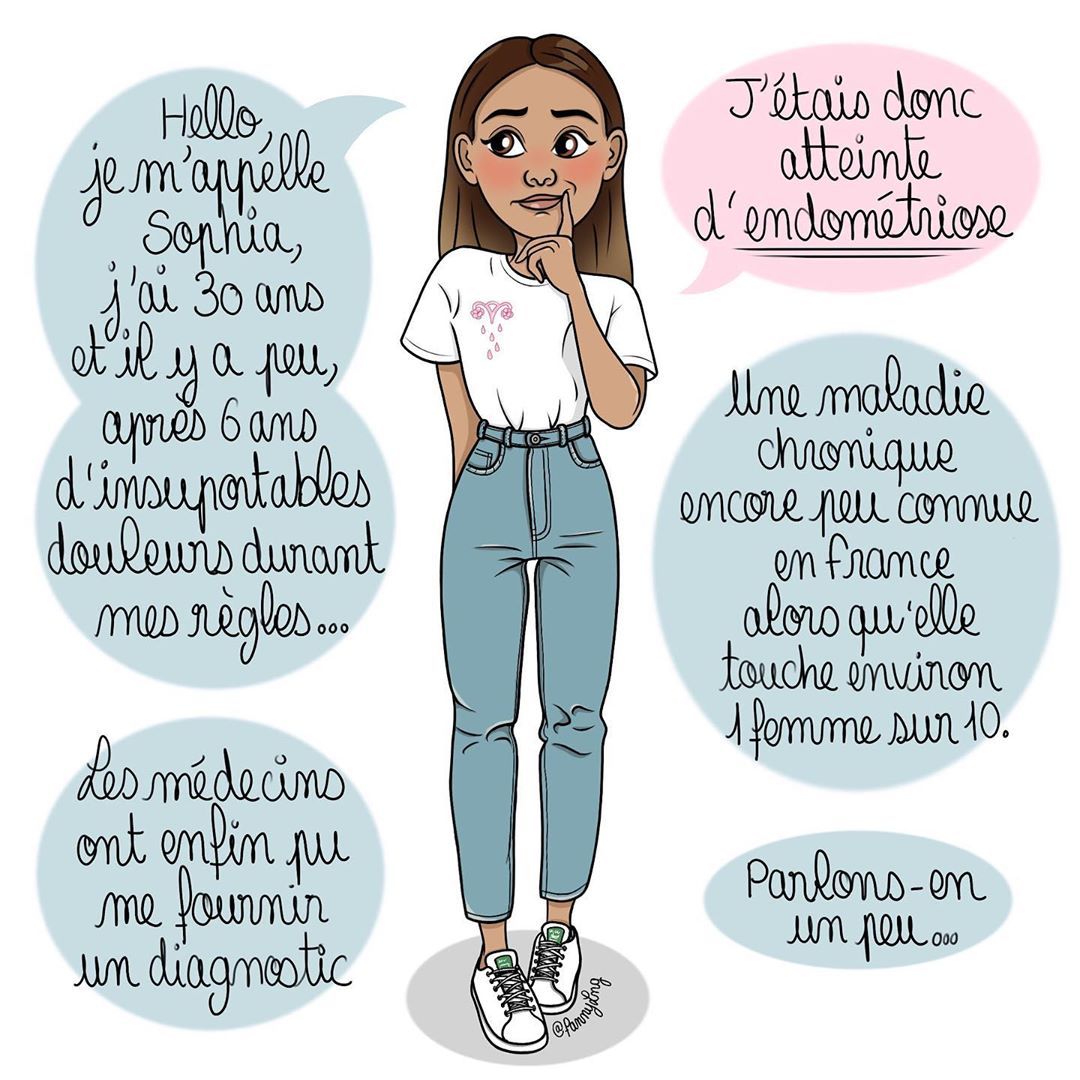 Hello,
je m'appelle
Sophia,
j'ai 30 ans
et il y a peu,
après 6 ans
d'insuportables
douleurs durant
mes règles...
Les médecins
ont enfin pu
me fournir
un diagnostic
J'étais donc
atteinte
d'endométriose
Une maladie
chronique
encore peu connue
en France
alors qu'elle
touche environ
1 femme sur 10.
Parlons-en
un peu...
@fannylng